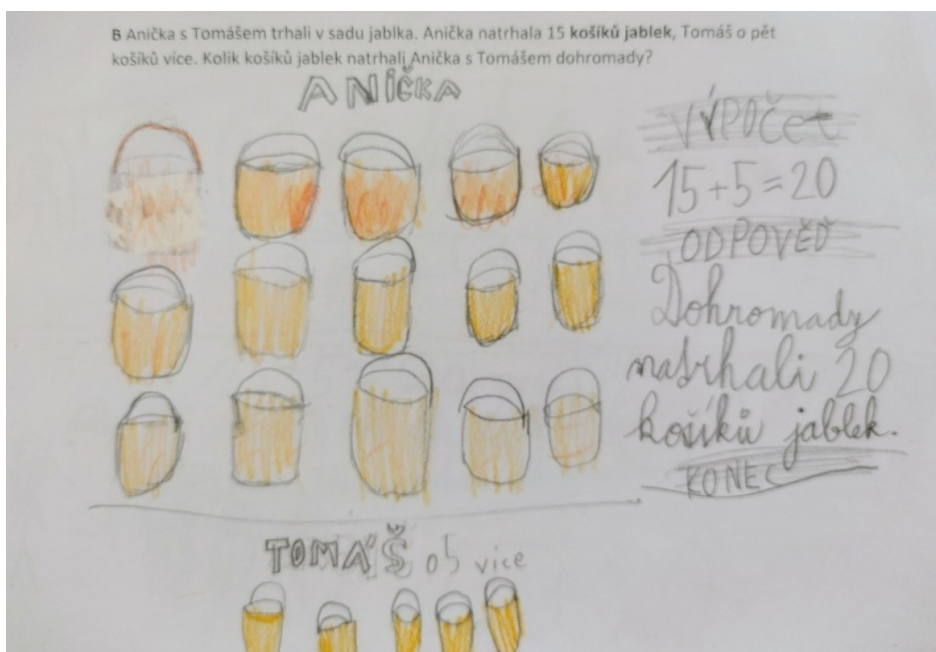 B Anička s Tomášem trhali v sadu jablka. Anička natrhala 15 košíků jablek, Tomáš o pět
košíků více. Kolik košíků jablek natrhali Anička s Tomášem dohromady?
ANIČKA
VÝPOČet
15+5=20
ODPOVĚĎ
Dohromady
natrhali 20
košíků jablek.
KONEC
TOMÁŠ o 5 více